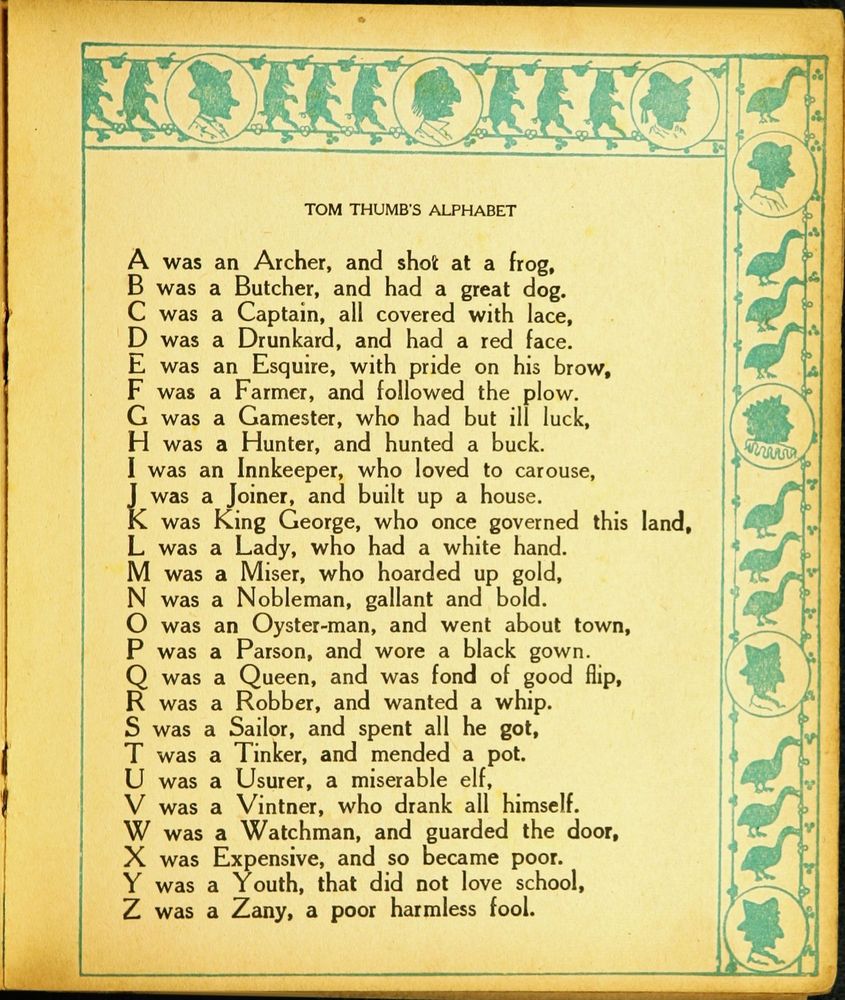 TOM THUMB'S ALPHABET
A was an Archer, and shot at a frog,
B was a Butcher, and had a great dog.
C was a Captain, all covered with lace,
D was a Drunkard, and had a red face.
E was an Esquire, with pride on his brow,
F was a Farmer, and followed the plow.
G was a Gamester, who had but ill luck,
H was a Hunter, and hunted a buck.
I was an Innkeeper, who loved to carouse,
J was a Joiner, and built up a house.
K was King George, who once governed this land,
L was a Lady, who had a white hand.
M was a Miser, who hoarded up gold,
N was a Nobleman, gallant and bold.
O was an Oyster-man, and went about town,
P was a Parson, and wore a black gown.
Q was a Queen, and was fond of good flip,
R was a Robber, and wanted a whip.
S was a Sailor, and spent all he got,
T was a Tinker, and mended a pot.
U was a Usurer, a miserable elf,
V was a Vintner, who drank all himself.
W was a Watchman, and guarded the door,
X was Expensive, and so became poor.
Y was a Youth, that did not love school,
Z was a Zany, a poor harmless fool.